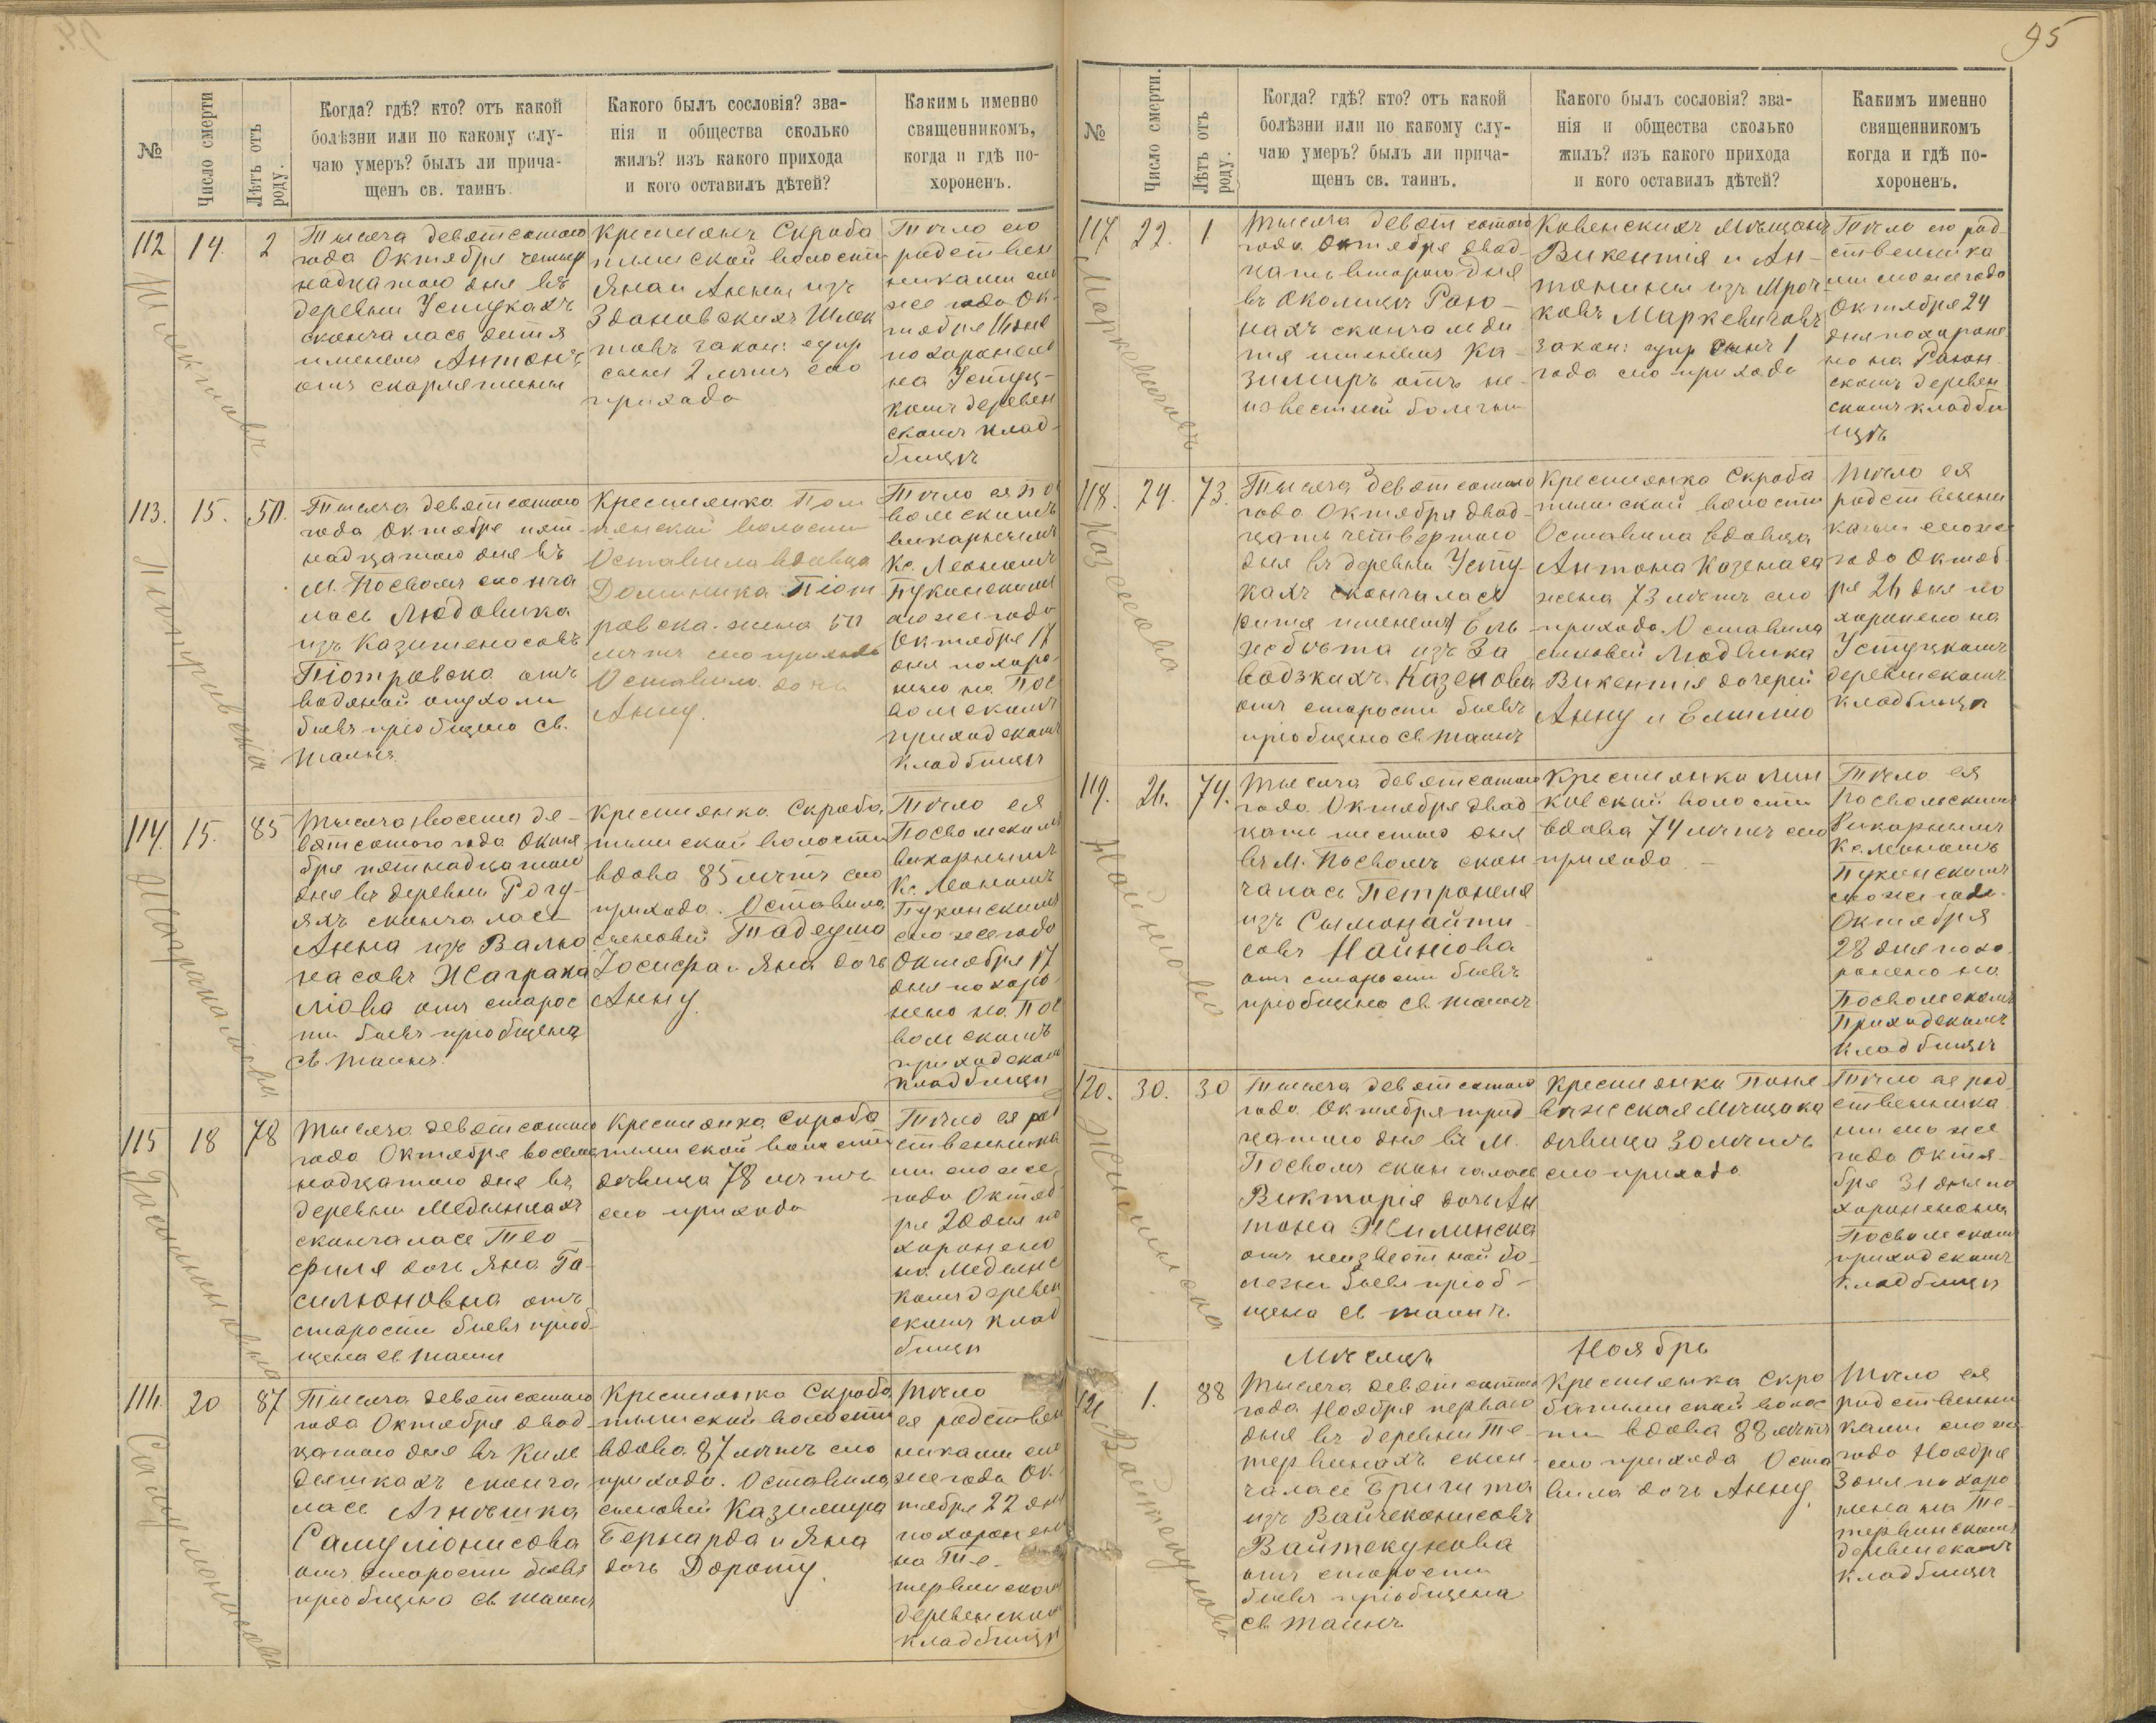 95
№
Число смерти
Лѣтъ отъ роду.
Когда? гдѣ? кто? отъ какой
болѣзни или по какому слу-
чаю умеръ? былъ ли прича-
щенъ св. таинъ.
Какого былъ сословія? зва-
нія и общества сколько
жилъ? изъ какого прихода
и кого оставилъ дѣтей?
Какимъ именно
священникомъ,
когда и гдѣ по-
хороненъ.
112
14.
2
Тысяча девятсотаго
года Октября четыр
надцатаго дня въ
деревни Устукахъ
скончалась дитя
именемъ Антонъ
отъ скарлятины
Крестьянъ Скроба
тишской волости
Яна и Анны изъ
Здановскихъ
закон: супр
сынъ 2 лѣтъ сего
прихода
Тѣло его
родствен
никами сего
же года Ок
тября
похоронено
на Устуц-
комъ деревен
скомъ клад-
бищѣ
113.
15.
50.
Піотровска
Тысяча девятсотаго
года Октября пят
надцатаго дня въ
М. Посволѣ сконча
лась Людовика
изъ Казименасовъ
Піотровска отъ
водяной опухоли
бывъ пріобщено Св.
Таинъ
Крестьянка
волости
Оставила вдовца
Доминика Піот
ровска жена 50
лѣтъ сего прихода
Оставила дочь
Анну.
Тѣло ея По
волскимъ
викарнымъ
Кс. Леономъ
Пуконскимъ
сего же года
Октября 17
дня похоро-
нено на Пос
волскомъ
приходскомъ
кладбищѣ
114.
15.
85
Тысяча восемь де-
вятсотого года Октя
бря пятнадцатаго
дня въ деревни Рагу-
яхъ скончалась
Анна изъ Валю
насовъ Жаграка
ліова отъ старос
ти бывъ пріобщена
св. Таинъ.
Крестьянка Скроба
тишской волости
вдова 85 лѣтъ сего
прихода. Оставила
сыновей Тадеуша
Іосифа и Яна дочь
Анну.
Тѣло ея
Посволскимъ
викарнымъ
Кс. Леономъ
Пуконскимъ
сего же года
Октября 17
дня похоро-
нено на Пос
волскомъ
приходском
кладбищѣ
115
18
78
Тысяча девятсотаго
года Октября восем
надцатаго дня въ
деревни
скончалась Тео-
филя дочь Яна Га-
силюновна отъ
старости бывъ пріоб-
щена св. Таинъ
Крестьянка Скроба
тишской волости
дѣвица 78 лѣтъ
сего прихода
Тѣло ея род
ственника
ми сего же
года Октяб
ря 20 дня по
хоронено
на
комъ деревен
скомъ клад
бищѣ
116.
20
87
Тысяча девятсотаго
года Октября двад
цатаго дня въ Киле
дяшкахъ сконча
лась Агнѣшка
Самуліонисова
отъ старости бывъ
пріобщена св. Таинъ
Крестьянка Скроба
тишской волости
вдова 87 лѣтъ сего
прихода. Оставила
сыновей Казимира
Бернарда и Яна
дочь Дороту.
Тѣло
ея родствен
никами сего
же года Ок-
тября 22 дня
похоронено
на Те-
тервинском
деревенском
кладбищѣ
№
Число смерти.
Лѣтъ отъ роду.
Когда? гдѣ? кто? отъ какой
болѣзни или по какому слу-
чаю умеръ? былъ ли прича-
щенъ св. таинъ.
Какого былъ сословія? зва-
нія и общества сколько
жилъ? изъ какого прихода
и кого оставилъ дѣтей?
Какимъ именно
священникомъ
когда и гдѣ по-
хороненъ.
117
22.
1
Маркевичовъ
Тысяча девятсотаго
года Октября двад-
цать втораго дня
въ околицѣ Раю-
нахъ скончал ди
тя именемъ Ка-
зимиръ отъ не-
известной болезни
Ковенскихъ Мѣщанъ
Викентія и Ан-
тонины изъ Мроч-
ковъ Маркевичовъ
закон: супр сынъ 1
года сего прихода
Тѣло его род
ственника
ми сего же года
Октября 24
дня похороне
но на Раюн
скомъ деревен
скомъ кладби
щѣ
118.
24.
73.
Казенова
Тысяча девятсотаго
года Октября двад-
цать четвертаго
дня въ деревни Усту
кахъ скончалась
дитя именемъ Ель
жбѣта изъ За
вадзкихъ Казенова
отъ старости бывъ
пріобщена св. Таинъ
Крестьянка Скроба
тишской волости
Оставила вдовца
Антона Казенаса
жена 73 лѣтъ сего
прихода Оставила
сыновей Людвика
Викентія дочерей
Анну и Емилію
Тѣло ея
родственни
ками сего же
года Октяб
ря 26 дня по
хоронено на
Устуцкомъ
деревенскомъ
кладбищѣ
119.
26.
74.
Тысяча девятсотаго
года Октября двад
цать шестаго дня
въ М. Посволѣ скон
чалась Петронеля
изъ Сымонайти
совъ Найнова
отъ старости бывъ
пріобщена св. Таинъ
Крестьянка Лин
ковской волости
вдова 74 лѣтъ сего
прихода
Тѣло ея
Посволскимъ
Викарнымъ
Кс. Леономъ
Пуконскимъ
сего же года
Октября
28 дня похо
ронено на
Посволскомъ
Приходскомъ
кладбищѣ
120.
30.
30
Жилинска
Тысяча девятсотаго
года Октября трид
цатаго дня въ М.
Посволѣ скончалась
Викторія дочь Ан
тона Жилинска
отъ неизвестной бо-
лезни бывъ пріоб-
щена св Таинъ.
Крестьянка Поне
вежская Мѣщанка
дѣвица 30 лѣтъ
сего прихода
Тѣло ея род
ственника
ми сего же
года Октя-
бря 31 дня по
хоронено на
Посволскомъ
приходскомъ
кладбищѣ
Мѣсяцъ Ноябрь
121
1.
88
Вайтекунова
Тысяча девятсотаго
года Ноября перваго
дня въ деревни Те-
тервинахъ скон-
чалась Бригита
изъ Вайчеконисовъ
Вайтекунова
отъ старости
бывъ пріобщена
св Таинъ
Крестьянка Скро
батишской волос
ти вдова 88 лѣтъ
сего прихода Оста
вила дочь Анну.
Тѣло ея
родственни
ками сего же
года Ноября
3 дня похоро
нена на Те-
тервинскомъ
деревенскомъ
кладбищѣ